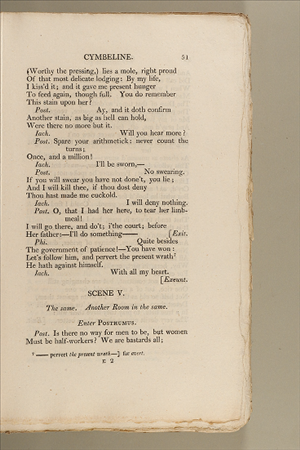 CYMBELINE. 51
(Worthy the pressing,) lies a mole, right proud
Of that most delicate lodging: By my life,
I kiss'd it; and it gave me present hunger
To feed again, though full. You do remember
This stain upon her?
Post. Ay, and it doth confirm
Another stain, as big as hell can hold,
Were there no more but it.
Iach. Will you hear more?
Post. Spare your arithmetick: never count the
turns;
Once, and a million!
Iach. I'll be sworn,—
Post. No swearing.
If you will swear you have not done't, you lie;
And I will kill thee, if thou dost deny
Thou hast made me cuckold.
Iach. I will deny nothing.
Post. O, that I had her here, to tear her limb-
meal!
I will go there, and do't; i'the court; before
Her father:—I'll do something—— [Exit.
Phi. Quite besides
The government of patience!—You have won:
Let's follow him, and pervert the present wrath⁷
He hath against himself.
Iach. With all my heart.
[Exeunt.
SCENE V.
The same. Another Room in the same.
Enter POSTHUMUS.
Post. Is there no way for men to be, but women
Must be half-workers? We are bastards all;
⁷ —— pervert the present wrath—] i.e. avert.
E 2